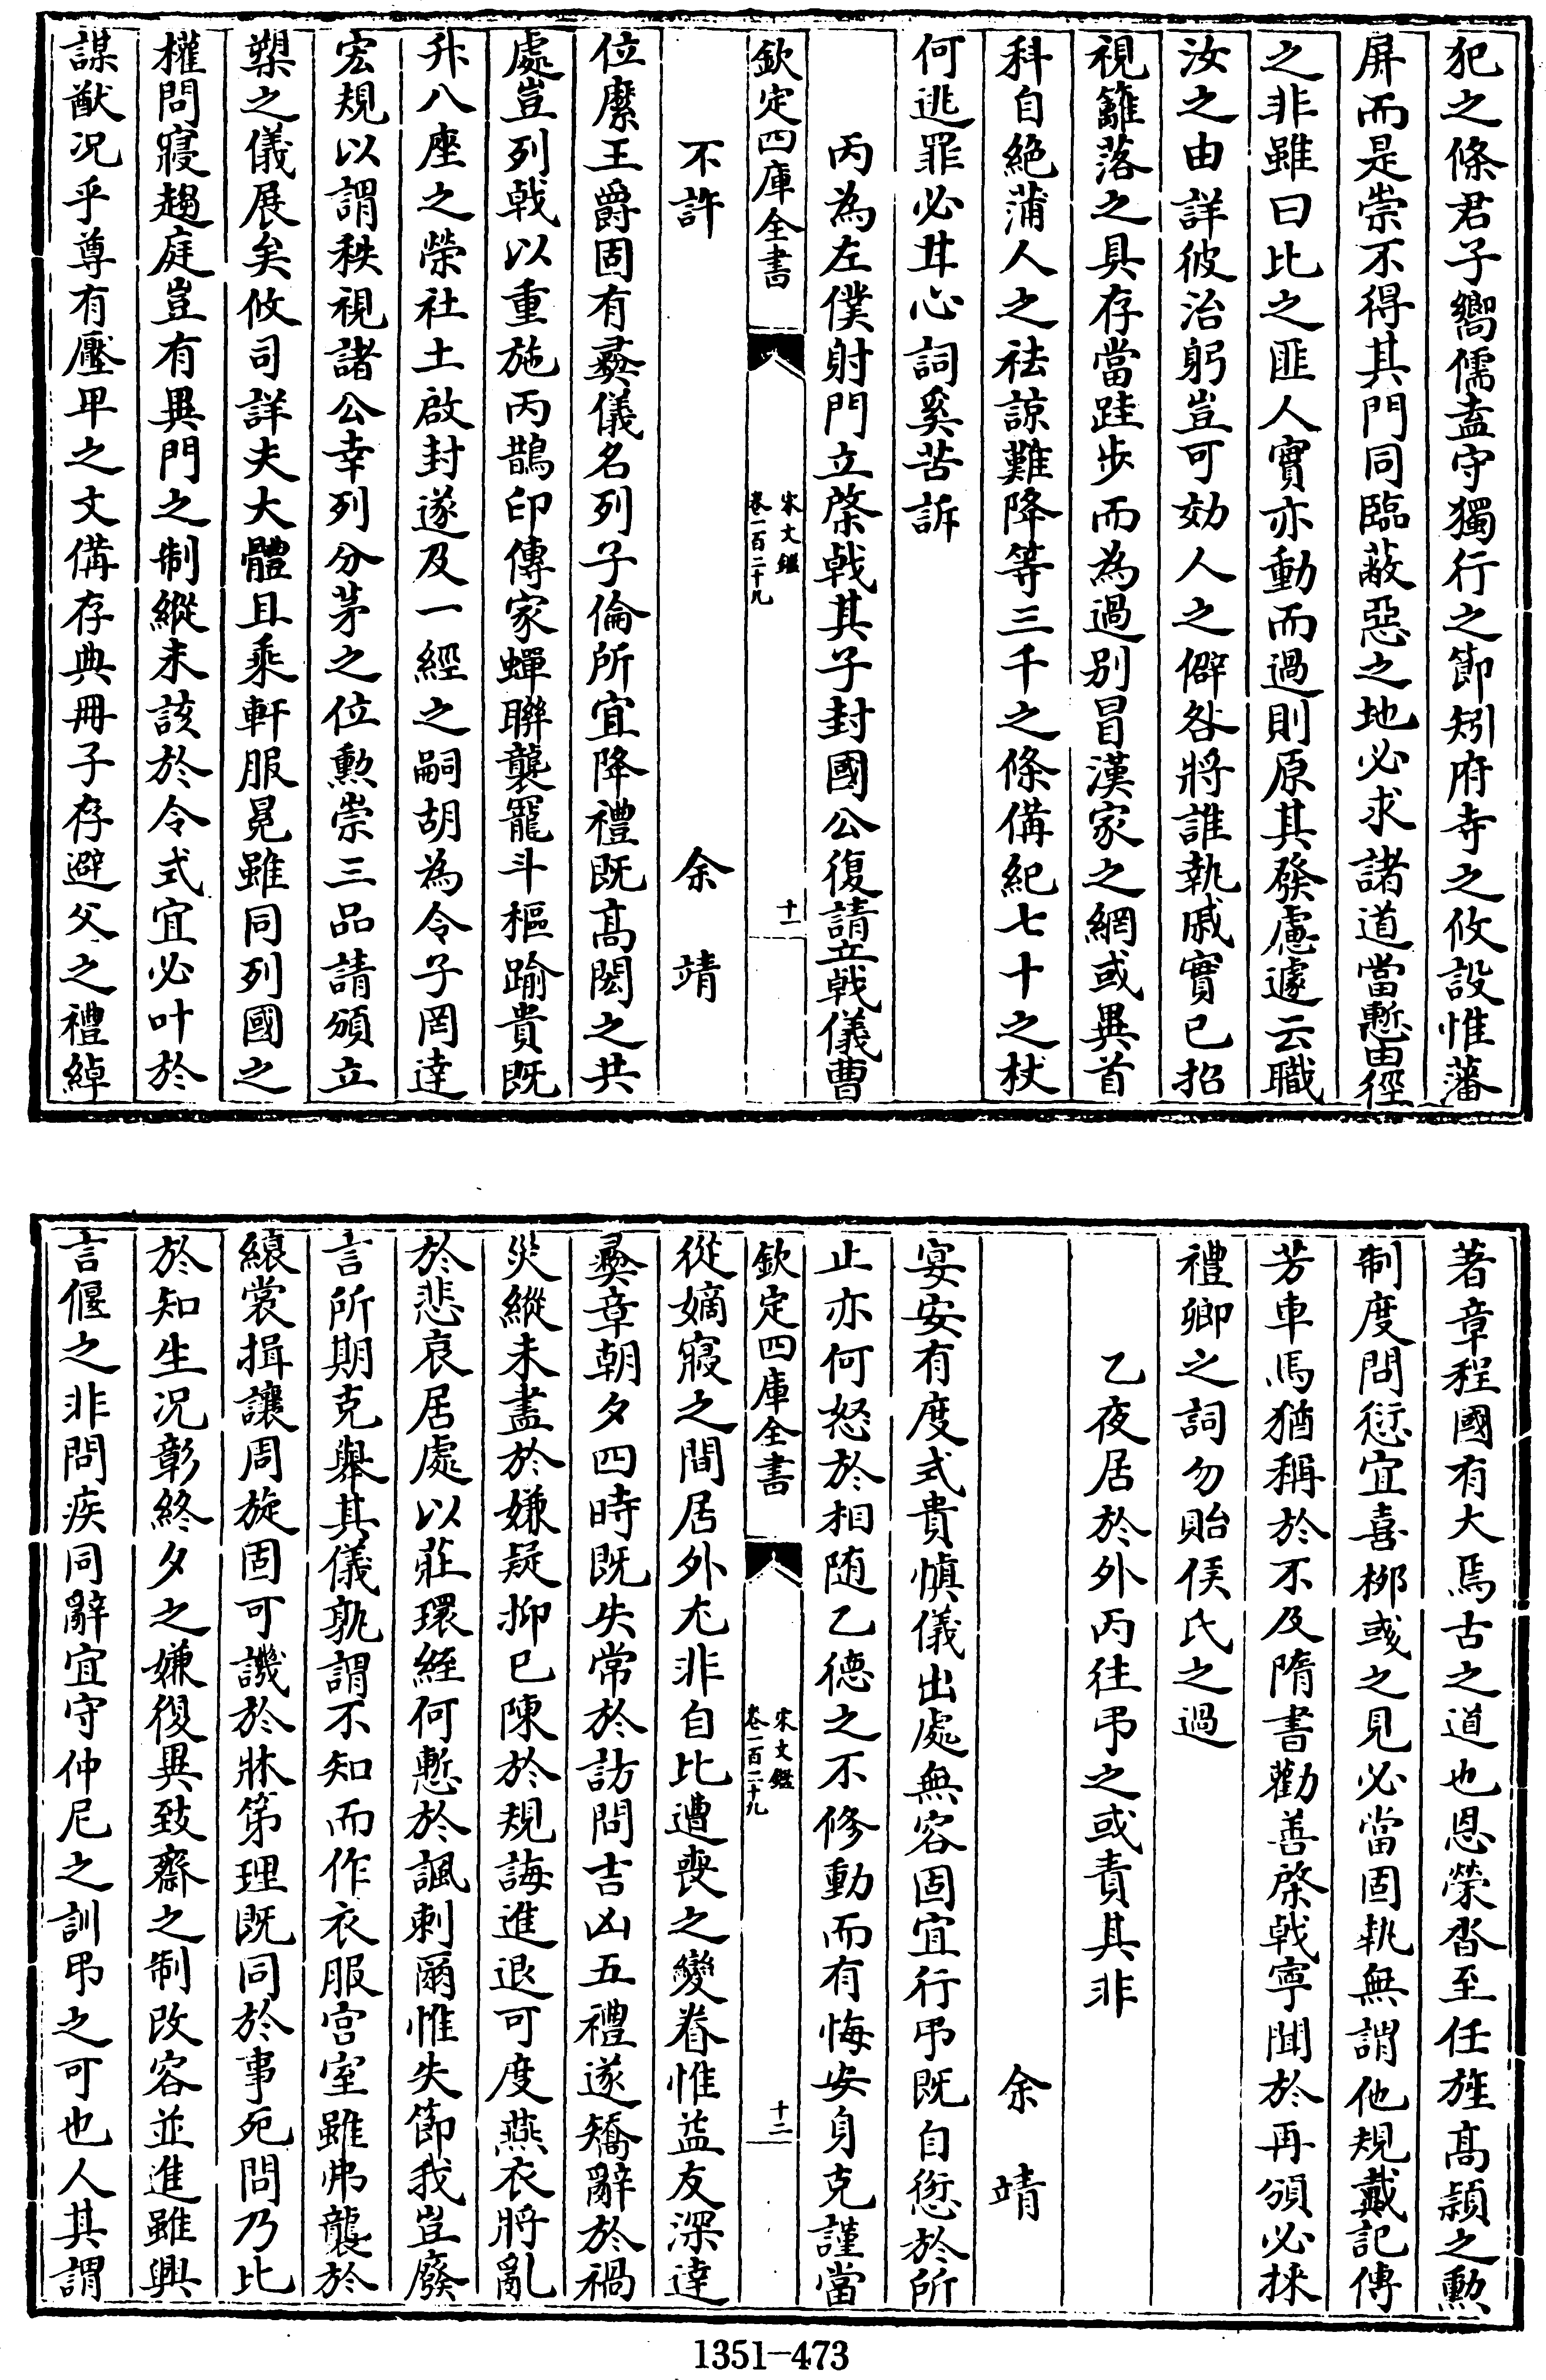 犯之條君子嚮儒盍守獨行之節矧府寺之攸設惟藩
屏而是崇不得其門同臨蔽惡之地必求諸道當慙由徑
之非雖曰比之匪人實亦動而過則原其發慮遽云職
汝之由詳彼治躬豈可効人之僻咎將誰執戚實已招
視籬落之具存當跬步而為過別冒漢家之網或異首
科自絶蒲人之祛諒難降等三千之條備紀七十之杖
何逃罪必甘心詞奚苦訴
丙為左僕射門立棨戟其子封國公復請立戟儀曹
欽定四庫全書
宋文鑑
卷一百二十九
十一
不許
余靖
位縻王爵固有彝儀名列子倫所宜降禮既髙閎之共
處豈列戟以重施丙鵲印傳家蟬聯襲寵斗樞踰貴既
升八座之榮社土啟封遂及一經之嗣胡為令子罔達
宏規以謂秩視諸公幸列分茅之位勲崇三品請頒立
槊之儀展矣攸司詳夫大體且乘軒服冕雖同列國之
權問寢趨庭豈有異門之制縱未該於令式宜必叶於
謀猷况乎尊有壓卑之文備存典冊子存避父之禮綽
著章程國有大焉古之道也恩榮沓至任旌髙熲之勲
制度問愆宜喜栁彧之見必當固執無謂他規戴記傳
芳車馬猶稱於不及隋書勸善棨戟寧聞於再頒必採
禮卿之詞勿貽侯氏之過
乙夜居於外丙往弔之或責其非
余靖
宴安有度式貴慎儀出處無容固宜行弔既自愆於所
止亦何怒於相随乙德之不修動而有悔安身克謹當
欽定四庫全書
宋文鑑
卷一百二十九
十二
從嫡寢之間居外尤非自比遭喪之變眷惟益友深達
彝章朝夕四時既失常於訪問吉凶五禮遂矯辭於禍
災縱未盡於嫌疑抑已陳於規誨進退可度燕衣將亂
於悲哀居處以莊環絰何慙於諷刺爾惟失節我豈廢
言所期克舉其儀孰謂不知而作衣服宫室雖弗襲於
縗裳揖讓周旋固可譏於牀第理既同於事死問乃比
於知生况彰終夕之嫌復異致齋之制改容並進雖興
言偃之非問疾同辭宜守仲尼之訓弔之可也人其謂
1351-473